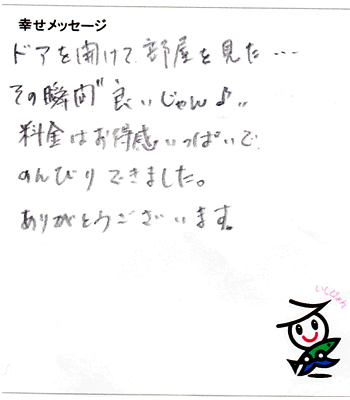 幸せメッセージ
ドアを開けて、部屋を見た…
その瞬間"良いじゃん♪"
料金はお得感いっぱいで
のんびりできました。
ありがとうございます。